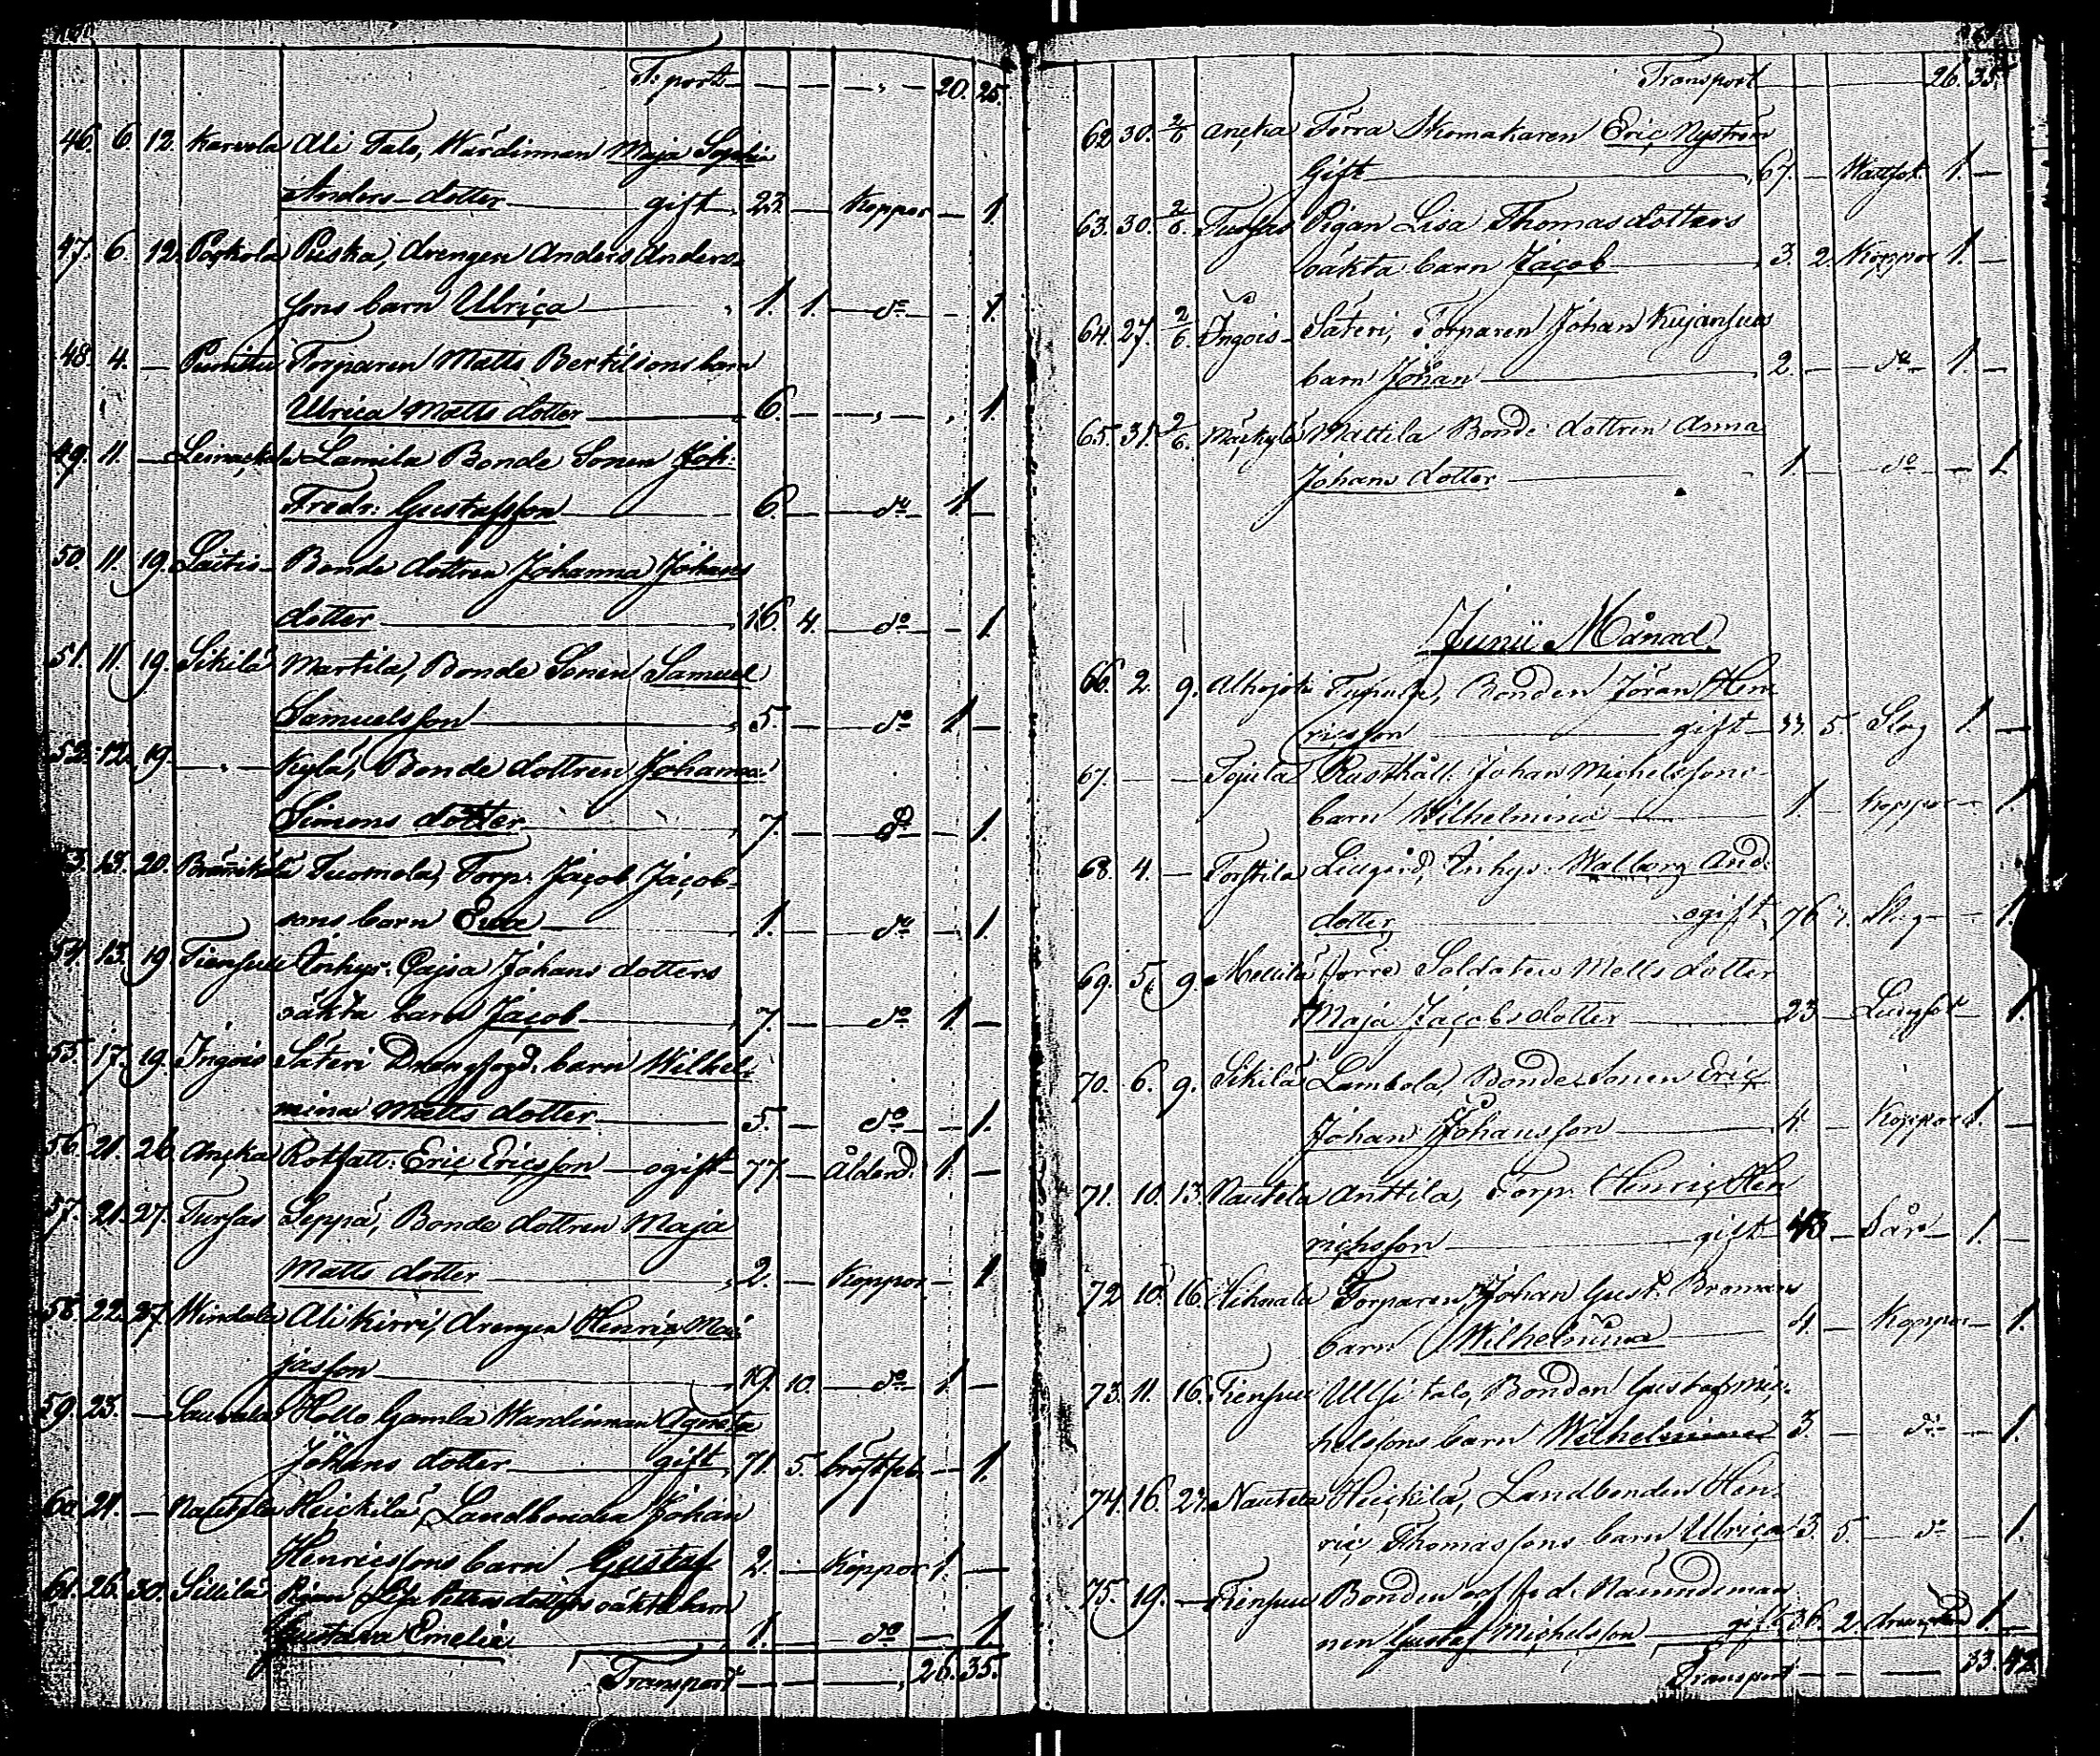 T: port — — „ — 20. 25.
46. 6. 12. Karvola Ali Talo, Wärdinnan Maja Sophia
Anders-dotter gift 23 — Koppor — 1
47. 6. 12. Paşkola Piiska, drengen Anders Anders-
sons barn Ulrica 1. 1. — do — 1
48. 4. — Torparen Matts Bertilsons barn
Ulrica Matts dotter 6. — — „ — „ 1.
49. 11. — Lamila Bonde Sonen Joh:
Fredr: Gustafsson 6. — do 1. —
50. 11. 19. Laitis- Bonde dottren Johanna Johans
dotter 16. 4. — do — 1.
51. 11. 19. Sikilä Martila, Bonde Sonen Samuel
Samuelsson 5. — do 1 —
52. 12. 19. — „ — Kylä, Bonde dottren Johanna
Simons dotter 7. — do — 1.
53. 13. 20. Tuomola, Torp. Jacob Jacob-
sons barn Ewa 1. — do — 1.
54. 13. 19. Tiensuu Inhys. Cajsa Johans dotters
oäkta barn Jacob 7. — do 1. —
55. 17. 19. Ingois Säteri Drengfogd. barn Wilhel-
mina Matts dotter 5. — do — 1.
56. 21. 26. Ançka Rotfatt. Eric Ericsson — ogift 77. — Ålderd. 1. —
57. 21. 27. Tursas Seppä, Bonde dottren Maja
Matts dotter 2. — Koppor — 1
58. 22. 27. Windala Alikirri, drengen Henric Mat-
jasson 19. 10. — do 1 —
59. 23. — Sauvala Hollo Gamla Wärdinnan Agneta
Johans dotter gift 71. 5. bröstfeb. — 1.
60. 24. — Nautela Heickilä, Landbonden Johan
Henricssons barn Gustaf 2. — Koppor 1. —
61. 26. 30. Sillilä Pigan Lisa Petters dotters oäkta barn
Gustava Emelie 1. — do — 1.
Transport — — — 26. 35.
Transport 26. 35.
62 30. 2/6 Ançka Förra Skomakaren Eric Nyström
Gift 67. — Wattsot 1. —
63. 30. 2/6 Tursas Pigan Lisa Thomas dotters
oäkta barn Jacob 3. 2. Koppor 1. —
64. 27. 2/6. Ingois- Säteri, Torparen Johan Kujansuus
barn Johan 2. — do 1. —
65. 31. 2/6. Mäckylä Mattila Bonde dottren Anna
Johans dotter 1. — do — 1.
Junii Månad.
66. 2. 9. Alhojoki Bonden Jöran Hen-
ricsson gift 33. 5. Slag 1. —
67. — — Tojula Rusthåll. Johan Michelssons-
barn Wilhelmina 1. — Koppor — 1
68. 4. — Torstila Inhys. Walborg And.
dotter ogift 76 1.
69. 5. 9. Mellilä Förre Soldaten Mells dotter
Maja Jacobs dotter 23 — Lungsot — 1.
70. 6. 9. Sikilä Lambola, Bonde Sonen Eric
Johan Johansson 4 — Koppor 1. —
71. 10. 13. Nautela Anttila, Torp. Henric Hen-
richsson gift 43 — Sår — 1. —
72 10. 16. Hihnala Torparen Johan Gust. Bromans
barn Wilhelmina 4. — Koppor — 1.
73. 11. 16. Tiensuu Ullsi talo, Bonden Gustaf Mic-
helssons barn Wilhelmina 3. — do — 1.
74. 16. 23. Nautela Heickilä, Landbonden Hen-
ric Thomassons barn Ulrica 3. 5. — do — 1.
75. 19. — Tiensuu Bonden och f. d. Nämndeman-
nen Gustaf Michelsson gift 36. 2 1 —
Transport — — — 33. 42